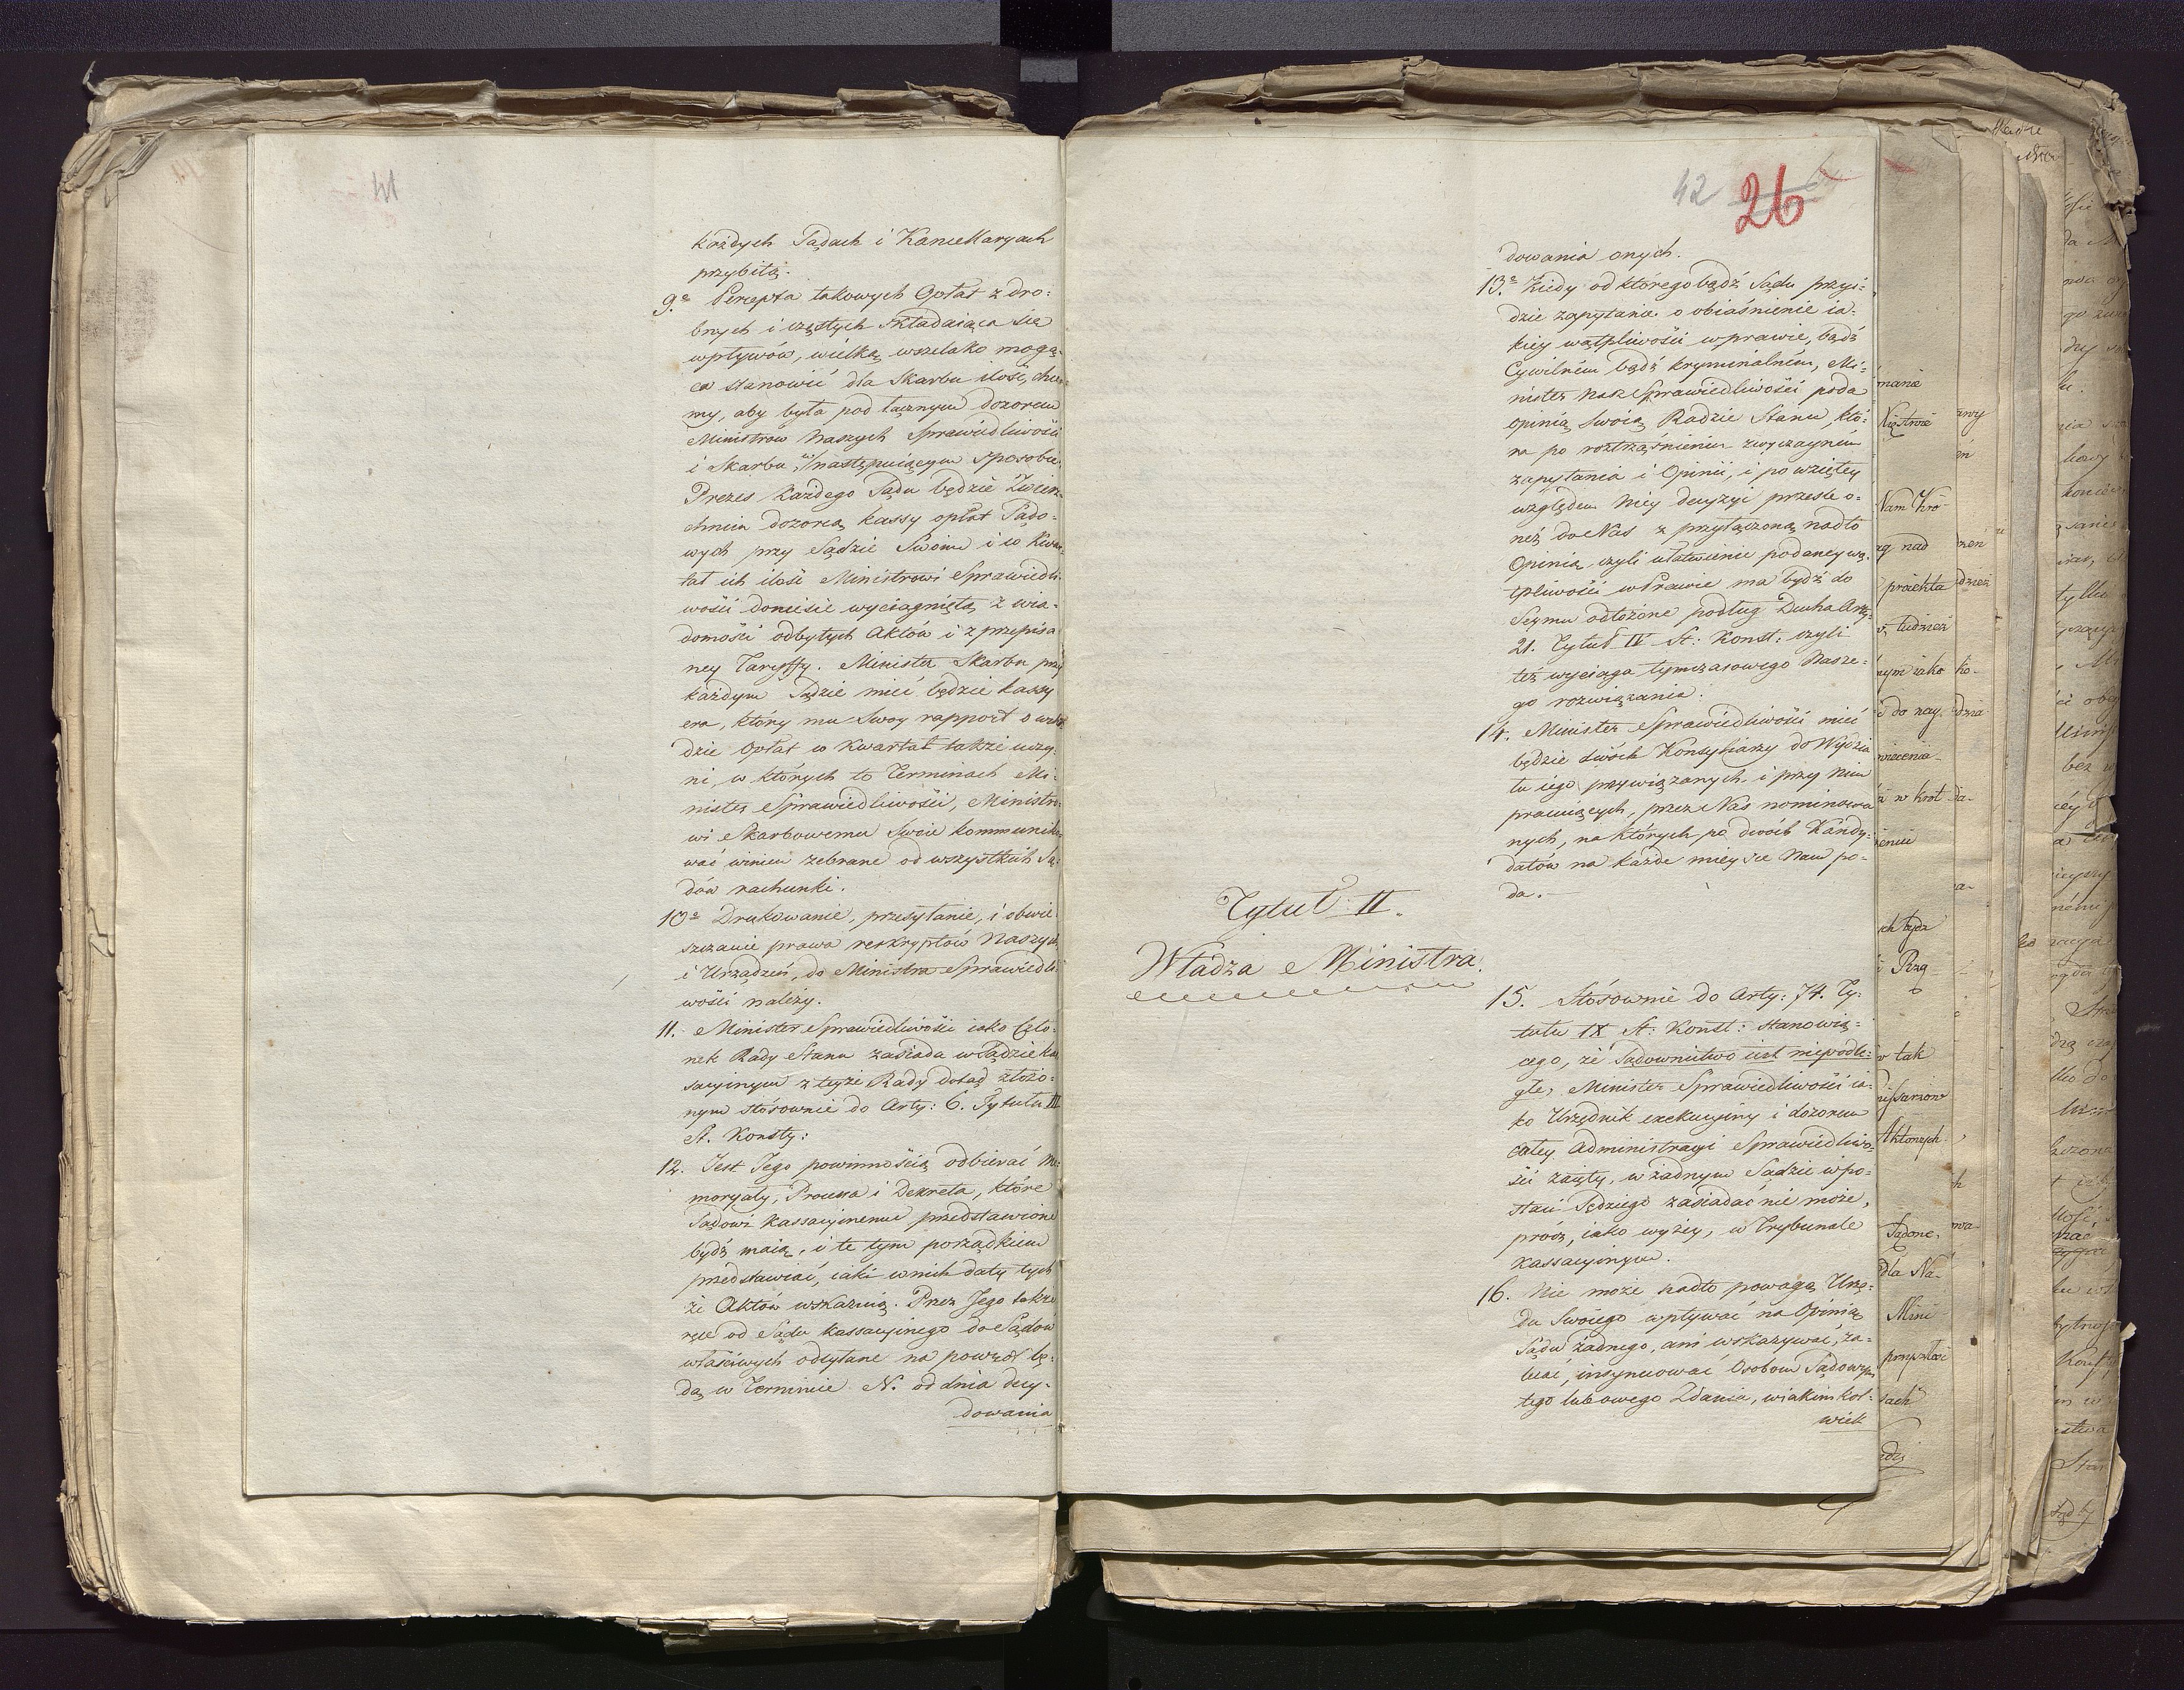 każdych Sądach i Kancellaryach
przybitą.
9o Percepta takowych Opłat z dro-
bnych i częstych składaiąca się
wpływów, wielką wszelako mogą-
ca stanowić dla Skarbu ilość, chce-
my, aby była pod łącznym dozorem
Ministrow Naszych Sprawiedliwości
i Skarbu, w następuiącym Sposobie.
Prezes każdego Sądu będzie Zwierz-
chnim dozorcą kassy opłat Sądo-
wych przy Sądzie Swoim i co kwar-
tał ich ilość Ministrowi Sprawiedli-
wości doniesie wyciągniętą z wia-
domości odbytych Aktów i z przepisa
ney Taryffy. Minister Skarbu przy
każdym Sądzie mieć będzie kassy
era, który mu Swoy rapport o
dzie Opłat w kwartał także uczy-
ni, w których to Terminach Mi-
nister Sprawiedliwości, Ministro-
wi Skarbowemu Swoie kommuniko-
wać winien zebrane od wszystkich Są-
dów rachunki.
10o Drukowanie, przesyłanie, i obwie-
szczanie prawa reskryptów Naszych
i Urządzeń, do Ministra Sprawiedli-
wości należy.
11. Minister Sprawiedliwości iako Czło-
nek Rady Stanu zasiada w Sądzie kas
sacyinym z teyże Rady dotąd złożo-
nym stósownie do Arty: 6. Tytułu III
St. Konsty:
12. Jest Jego powinnością odbierać Me-
moryały, Processa i Dekreta, które
Sądowi kassacyinemu przedstawione
bydź maią, i te tym porządkiem
przedstawiać, iaki w nich daty tych
że Aktów wskażuią. Przez Jego także
ręce od Sądu kassacyinego do Sądów
właściwych odsyłane na powrót bę-
dą w Terminie N. od dnia decy-
dowania
42 26
dowania onych.
13o Kiedy od którego bądź Sądu przyi-
dzie zapytanie o obiaśnienie ia-
kiey wątpliwości w prawie, bądź
Cywilném bądź kryminalném, Mi-
nister Nasz Sprawiedliwości poda
opinią Swoią Radzie Stanu, któ-
ra po roztrząśnieniu zwyczayném
zapytania i Opinii, i powziętey
względem niey decyzyi prześle o-
neż do Nas z przyłączoną nadto
Opinią czyli ułatwienie podaney wą-
tpliwości w Prawie ma bydź do
Seymu odłożone podług Ducha Arty:
21. Tytuł IV St: Konst: czyli
też wyciąga tymczasowego Nasze-
go rozwiązania.
14. Minister Sprawiedliwości mieć
będzie dwóch Konsyliarzy do Wydzia
łu iego przywiązanych i przy Nim
pracuiących, przez Nas nominowa
nych, na których po dwóch Kandy-
datów na każde mieysce Nam po-
da.
Tytuł II.
Władza Ministra.
15. Stósownie do Arty: 74. Ty-
tułu IX St: Konst: stanowią-
cego, że Sądownictwo iest niepodle-
głe, Minister Sprawiedliwości ia-
ko Urzędnik exekucyiny i dozorem
całey Administracyi Sprawiedliwo-
ści zaięty, w żadnym Sądzie w po-
staci Sędziego zasiadać nie może,
prócz, iako wyżey, w Trybunale
kassacyinym.
16. Nie może nadto powagą Urzę-
du Swoiego wpływać na Opinią
Sądu żadnego, ani wskazywać, za-
lecać, insynuować Osobom Sądowym
tego lub owego Zdania, w iakim kol-
wiek